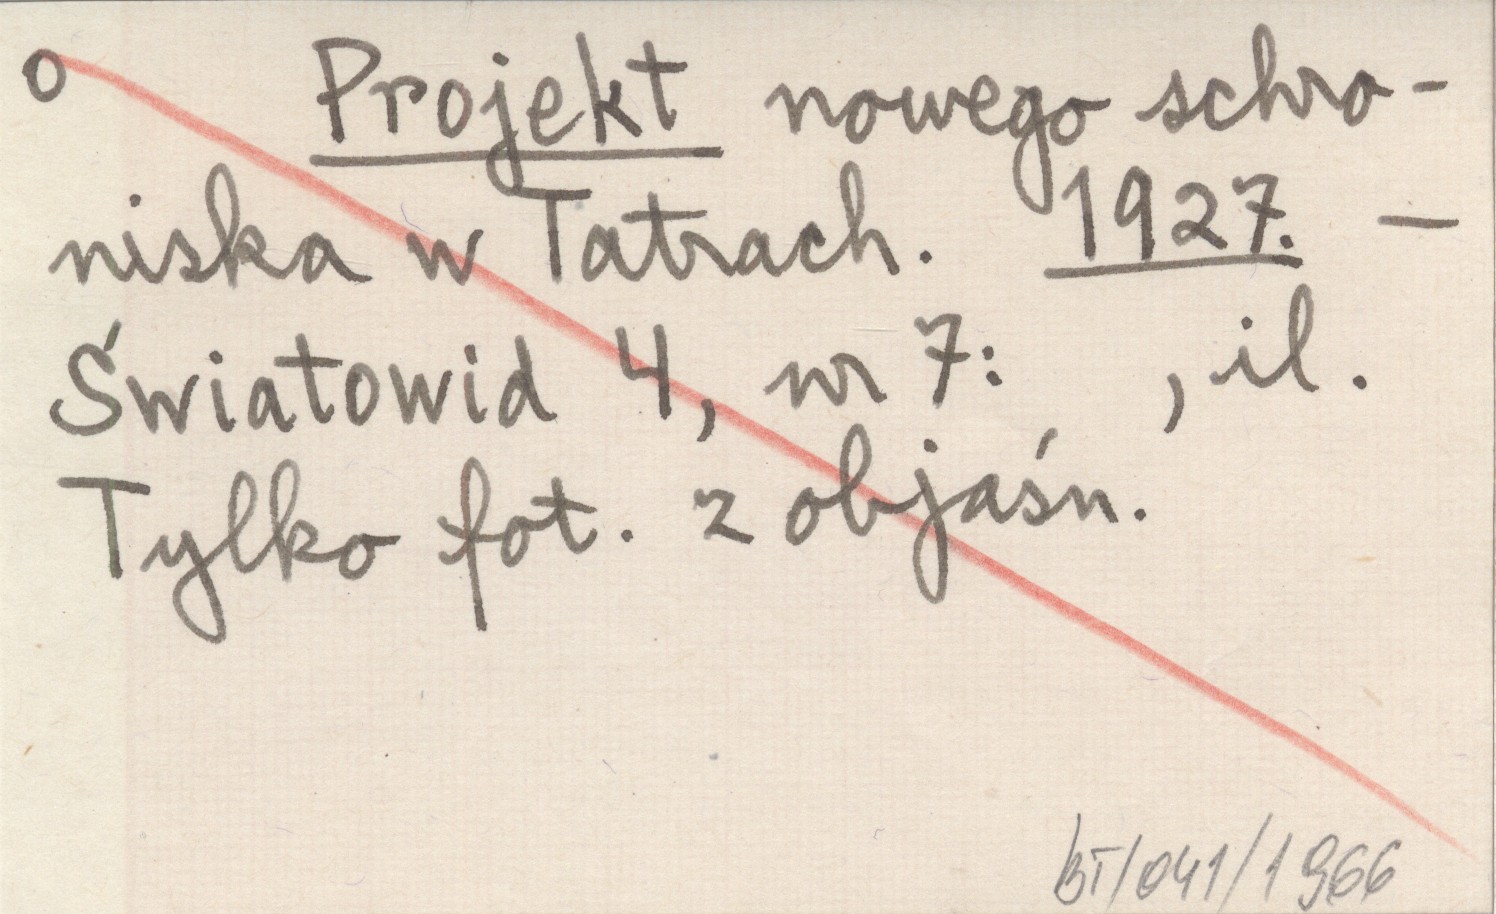 o Projekt nowego schro-
niska w Tatrach. 1927. —
Światowid 4, nr 7: , il.
Tylko fot. z objaśn.
BT/041/1966